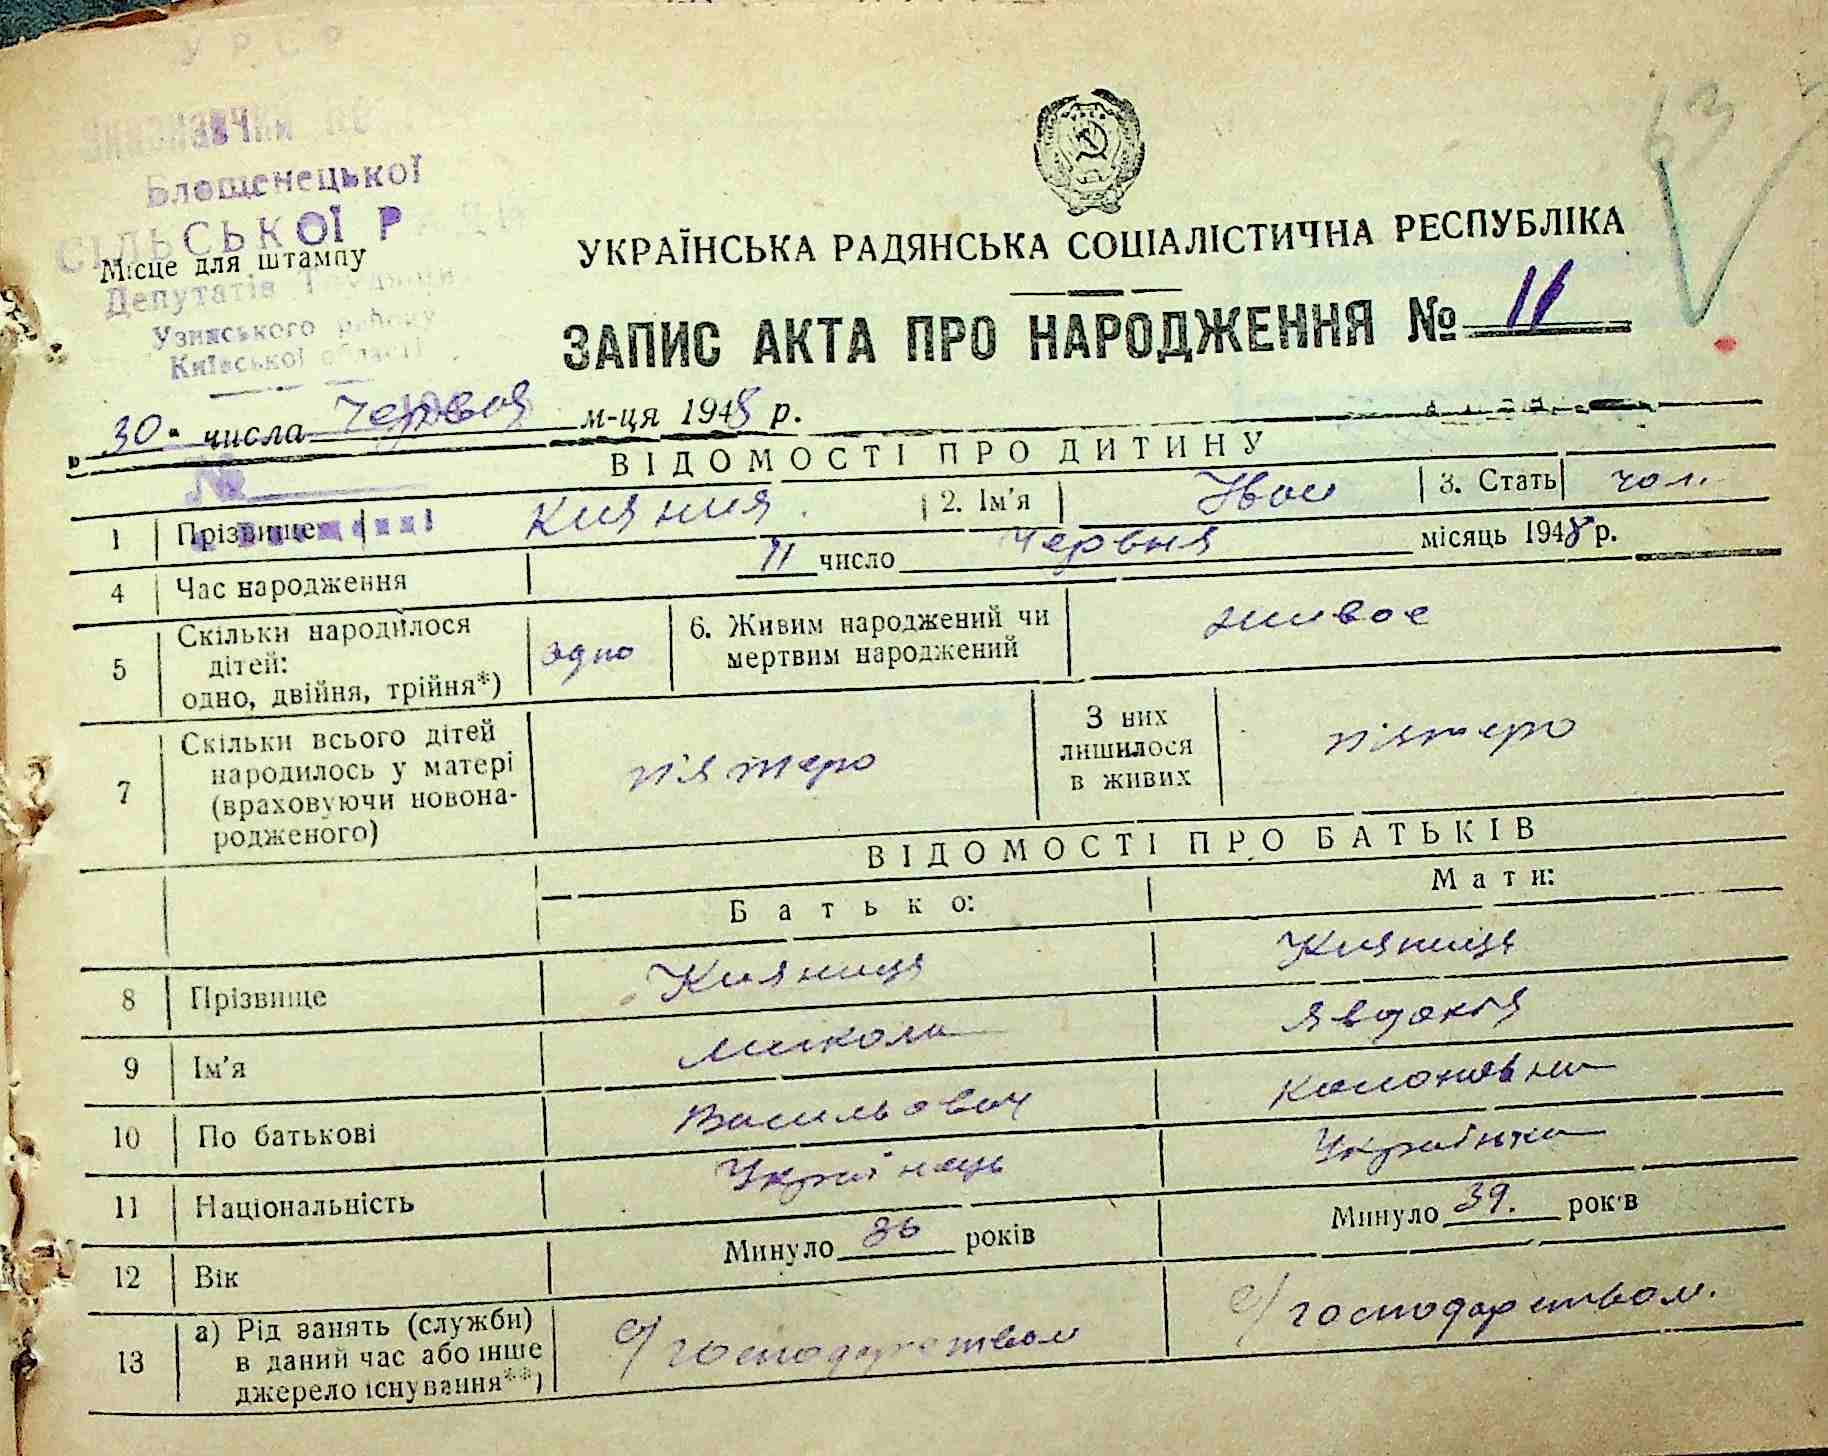 УРСР
Блощенецької
СІЛЬСЬКОЇ
Місце для штампу
Депутатів
Узинського району
Київської області
63
УКРАЇНСЬКА РАДЯНСЬКА СОЦІАЛІСТИЧНА РЕСПУБЛІКА
ЗАПИС АКТА ПРО НАРОДЖЕННЯ № 11
„30" числа Червня м-ця 1948 р.
ВІДОМОСТІ ПРО ДИТИНУ
№
1 Прізвище 2. Ім'я Іван 3. Стать чол.
4 Час народження 11 число Червня місяць 1948 р.
5 Скільки народилося дітей: одно, двійня, трійня*) одно 6. Живим народжений чи мертвим народжений живое
7 Скільки всього дітей народилось у матері (враховуючи новонародженого) п'ятеро З них лишилося в живих п'ятеро
ВІДОМОСТІ ПРО БАТЬКІВ
Батько: Мати:
8 Прізвище Кияниця Кияниця
9 Ім'я Микола Явдокія
10 По батькові Васильович
11 Національність Українець Українка
12 Вік Минуло 36 років Минуло 39. років
13 а) Рід занять (служби) в даний час або інше джерело існування**) с/господарством с/господарством.